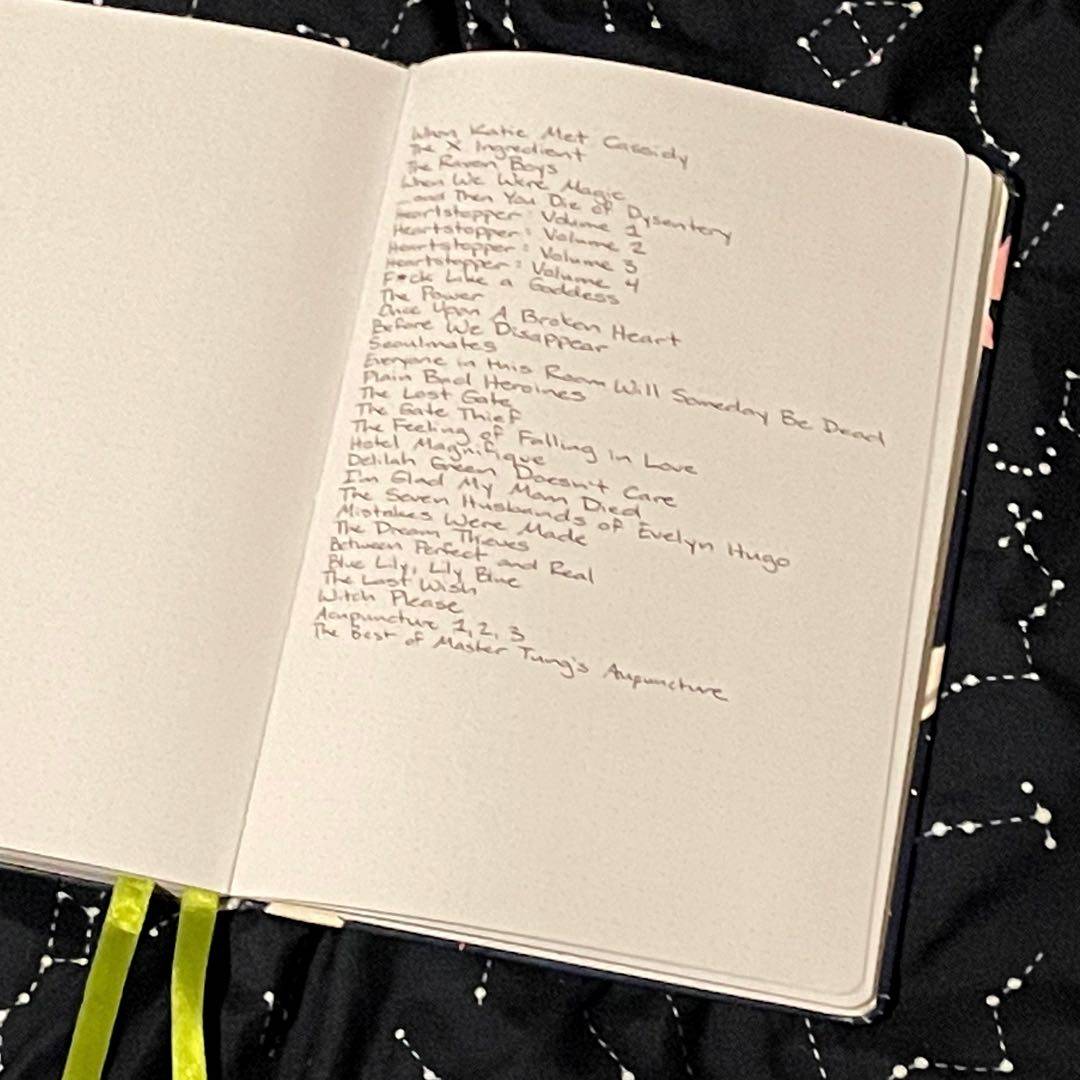 When Katie Met Cassidy
The X Ingredient
The Raven Boys
When We Were Magic
...and Then You Die of Dysentery
Heartstopper: Volume 1
Heartstopper: Volume 2
Heartstopper: Volume 3
Heartstopper: Volume 4
F*ck Like a Goddess
The Power
Once Upon A Broken Heart
Before We Disappear
Seoulmates
Everyone in this Room Will Someday Be Dead
Plain Bad Heroines
The Lost Gate
The Gate Thief
The Feeling of Falling in Love
Hotel Magnifique
Delilah Green Doesn't Care
I'm Glad My Mom Died
The Seven Husbands of Evelyn Hugo
Mistakes Were Made
The Dream Thieves
Between Perfect and Real
Blue Lily, Lily Blue
The Last Wish
Witch Please
Acupuncture 1, 2, 3
The Best of Master Tung's Acupuncture